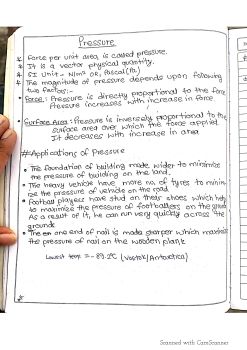 Pressure
* Force per unit area is called pressure.
* It is a vector physical quantity.
* SI Unit - N/m² OR, pascal (Pa)
* The magnitude of pressure depends upon following
two factors:-
• Force: Pressure is directly proportional to the force
Pressure increases with increase in force
• Surface Area: Pressure is inversely proportional to the
surface area over which the force applied.
It decreases with increase in area
# Applications of Pressure
• The foundation of building made wider to minimise
the pressure of building on the land.
• The heavy vehicle have more no. of tyres to minim
ize the pressure of vehicle on the road.
Football players have stud on their shoes which help
to maximize the pressure of footballers on the ground
As a result of it, he can run very quickly across the
ground.
• The one end of nail is made sharper which maximizes
the pressure of nail on the wooden plank
Lowest temp = -89.2°C (Vostok/Antarctica)
Scanned with CamScanner